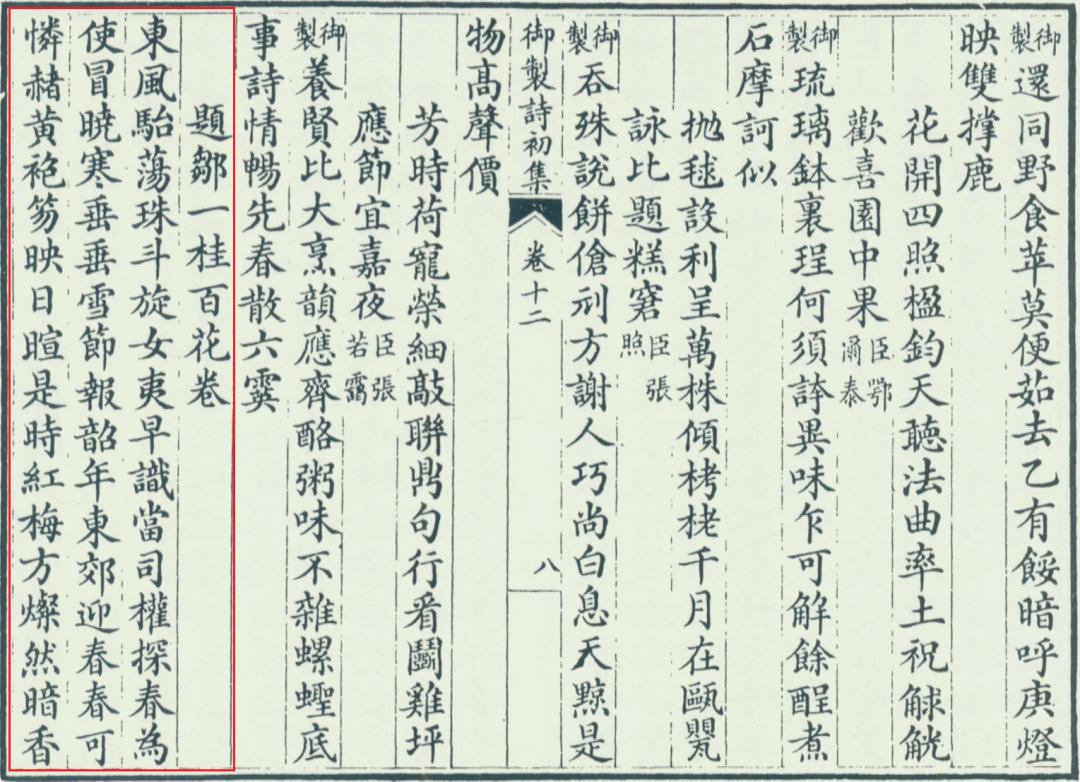 御製還同野食苹莫便茹去乙有餒暗呼庚燈
映雙撑鹿
花開四照楹鈞天聽法曲率土祝觩觥
歡喜園中果臣鄂爾泰
御製琉璃鉢裏珵何須誇異味乍可解餘酲煮
石摩訶似
拋毬設利呈萬株傾栲栳千月在甌甖
詠比題糕窘臣張照
御製吞殊說餅傖刌方謝人巧尚白息天黥是
御製詩初集 卷十二 八
物高聲價
芳時荷寵榮細敲聯鼎句行看鬭雞坪
應節宜嘉夜臣張若靄
御製養賢比大烹韻應齊酪粥味不雜螺蟶底
事詩情暢先春散六霙
題鄒一桂百花卷
東風駘蕩珠斗旋女夷早識當司權探春為
使冒曉寒垂垂雪節報韶年東郊迎春春可
憐赭黃袍笏映日暄是時紅梅方燦然暗香